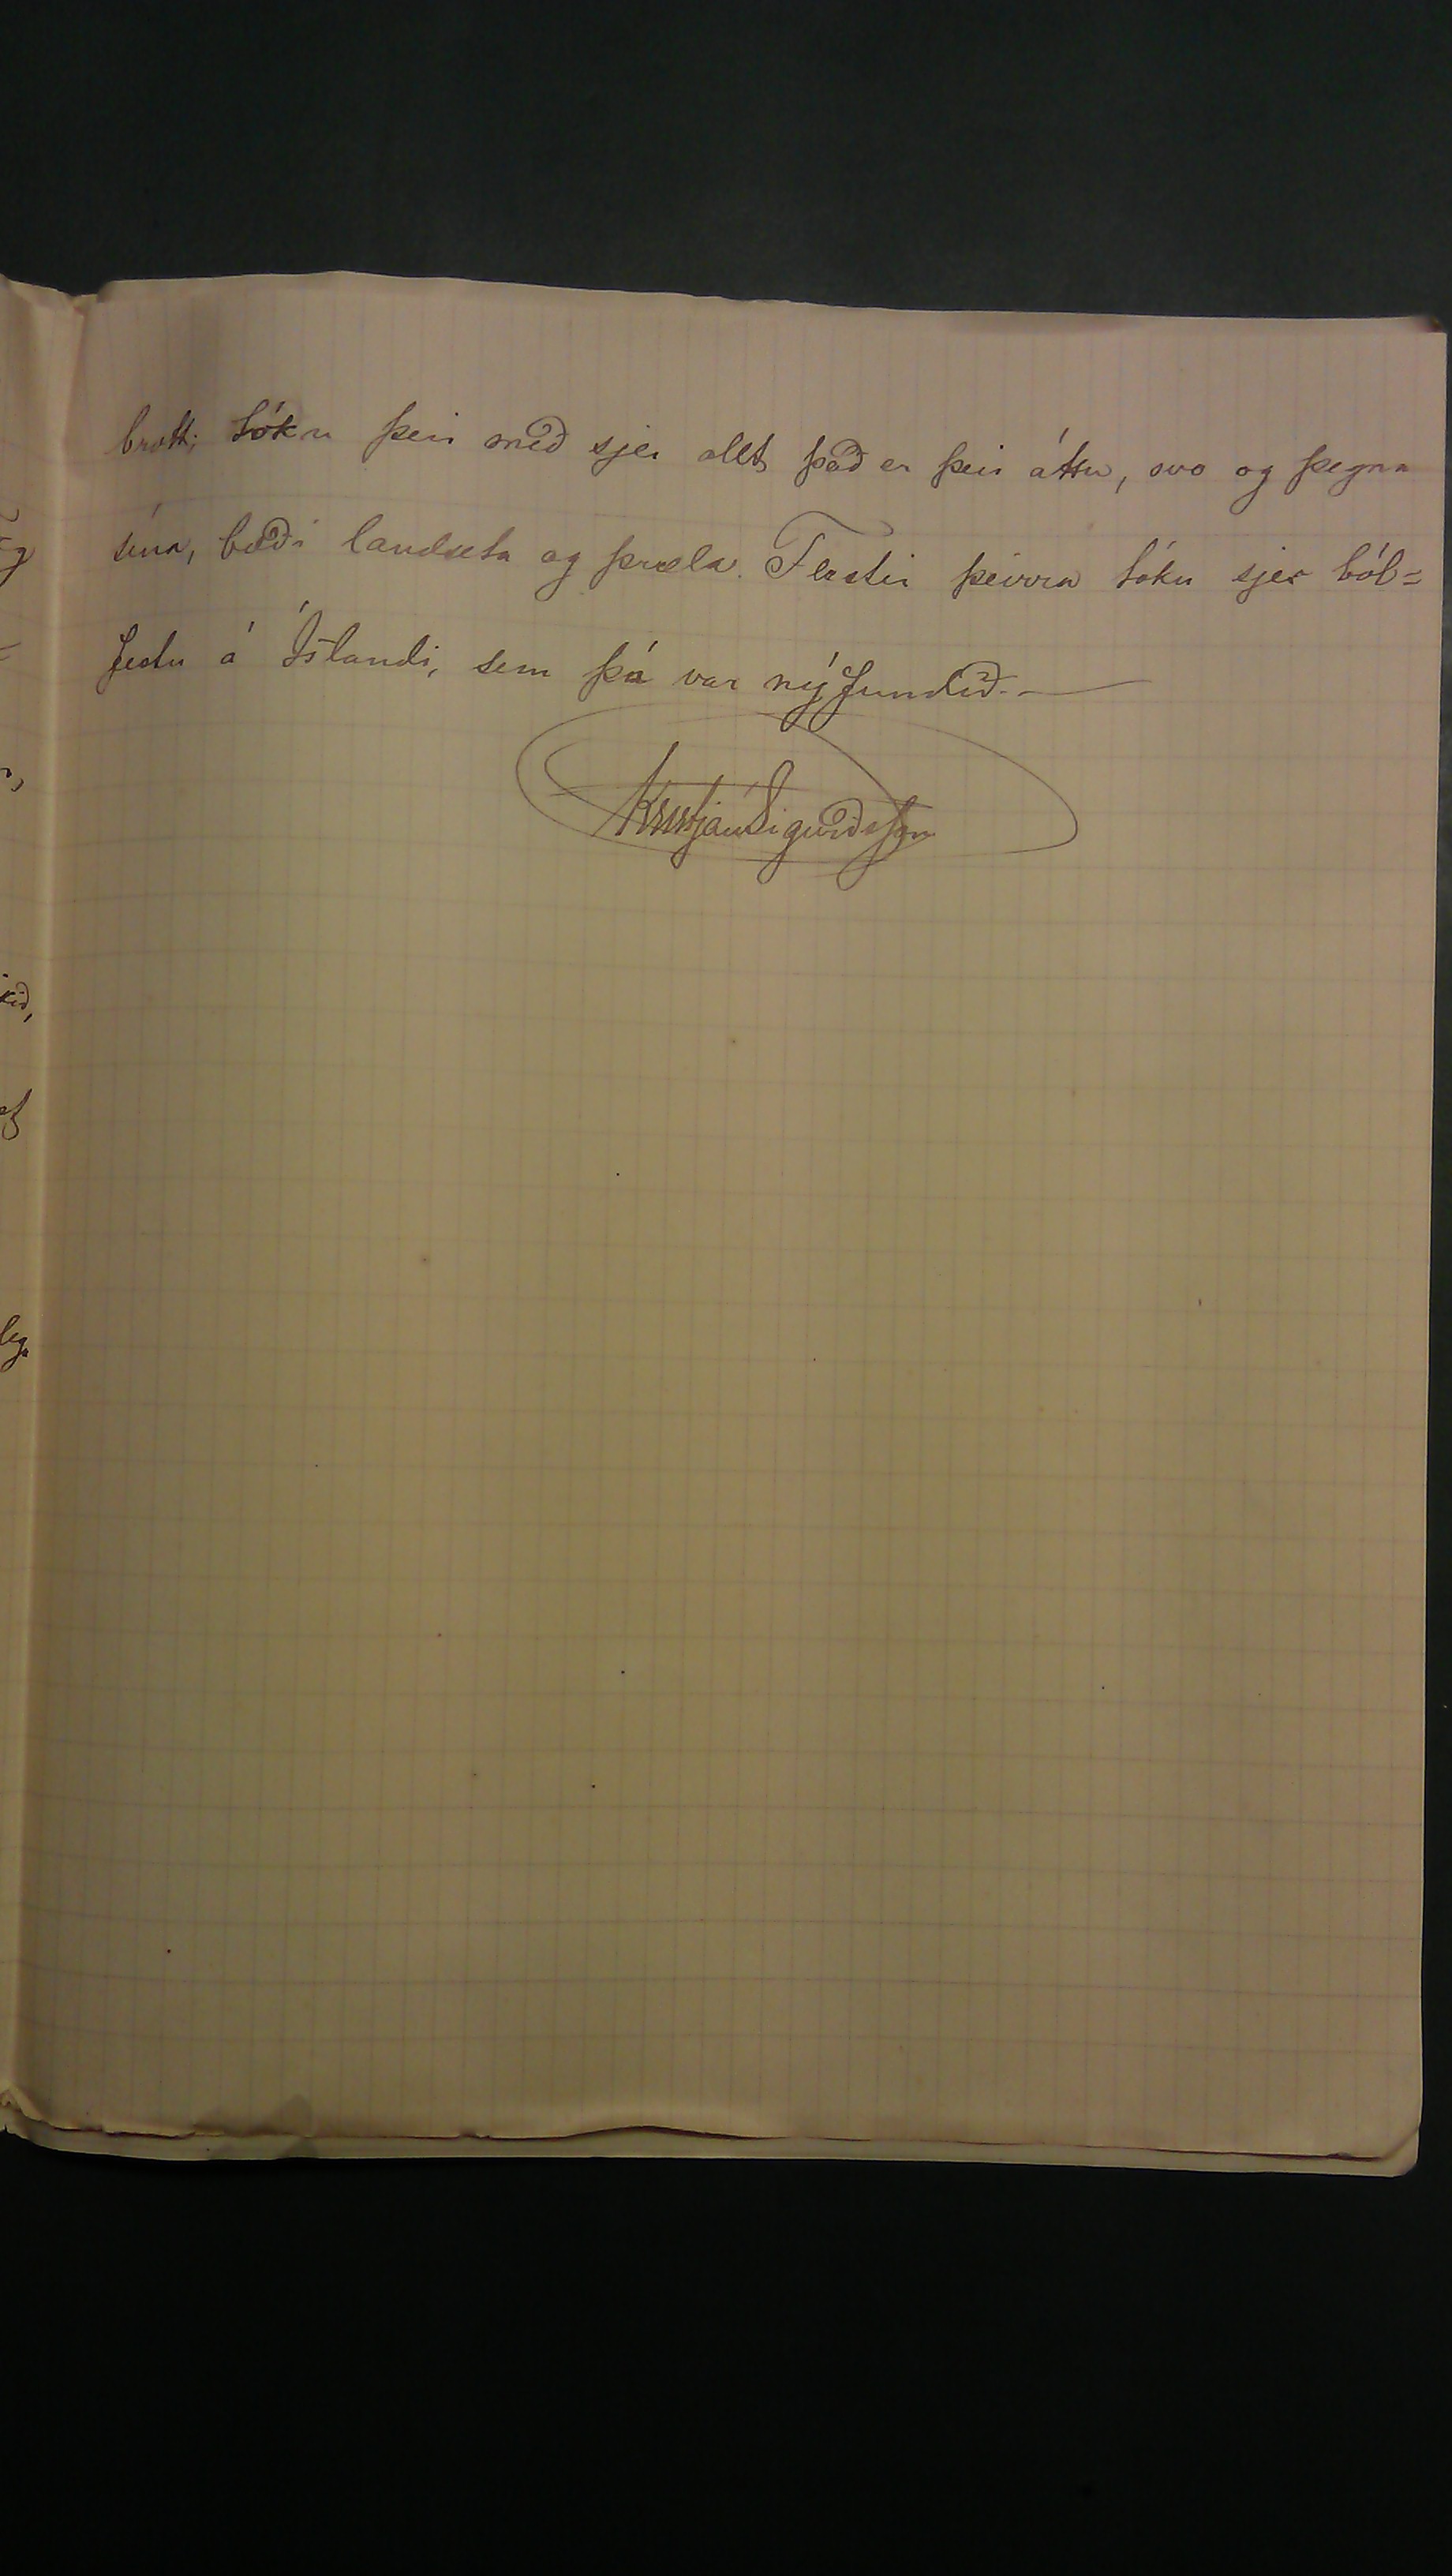 brott; tóku þeir með sjer allt það er þeir áttu, svo og þegna
sína, bæði landseta og þræla. Flestir þeirra tóku sjer ból=
festu á Íslandi, sem þá var nýfundið.—
Kristján Sigurðsson